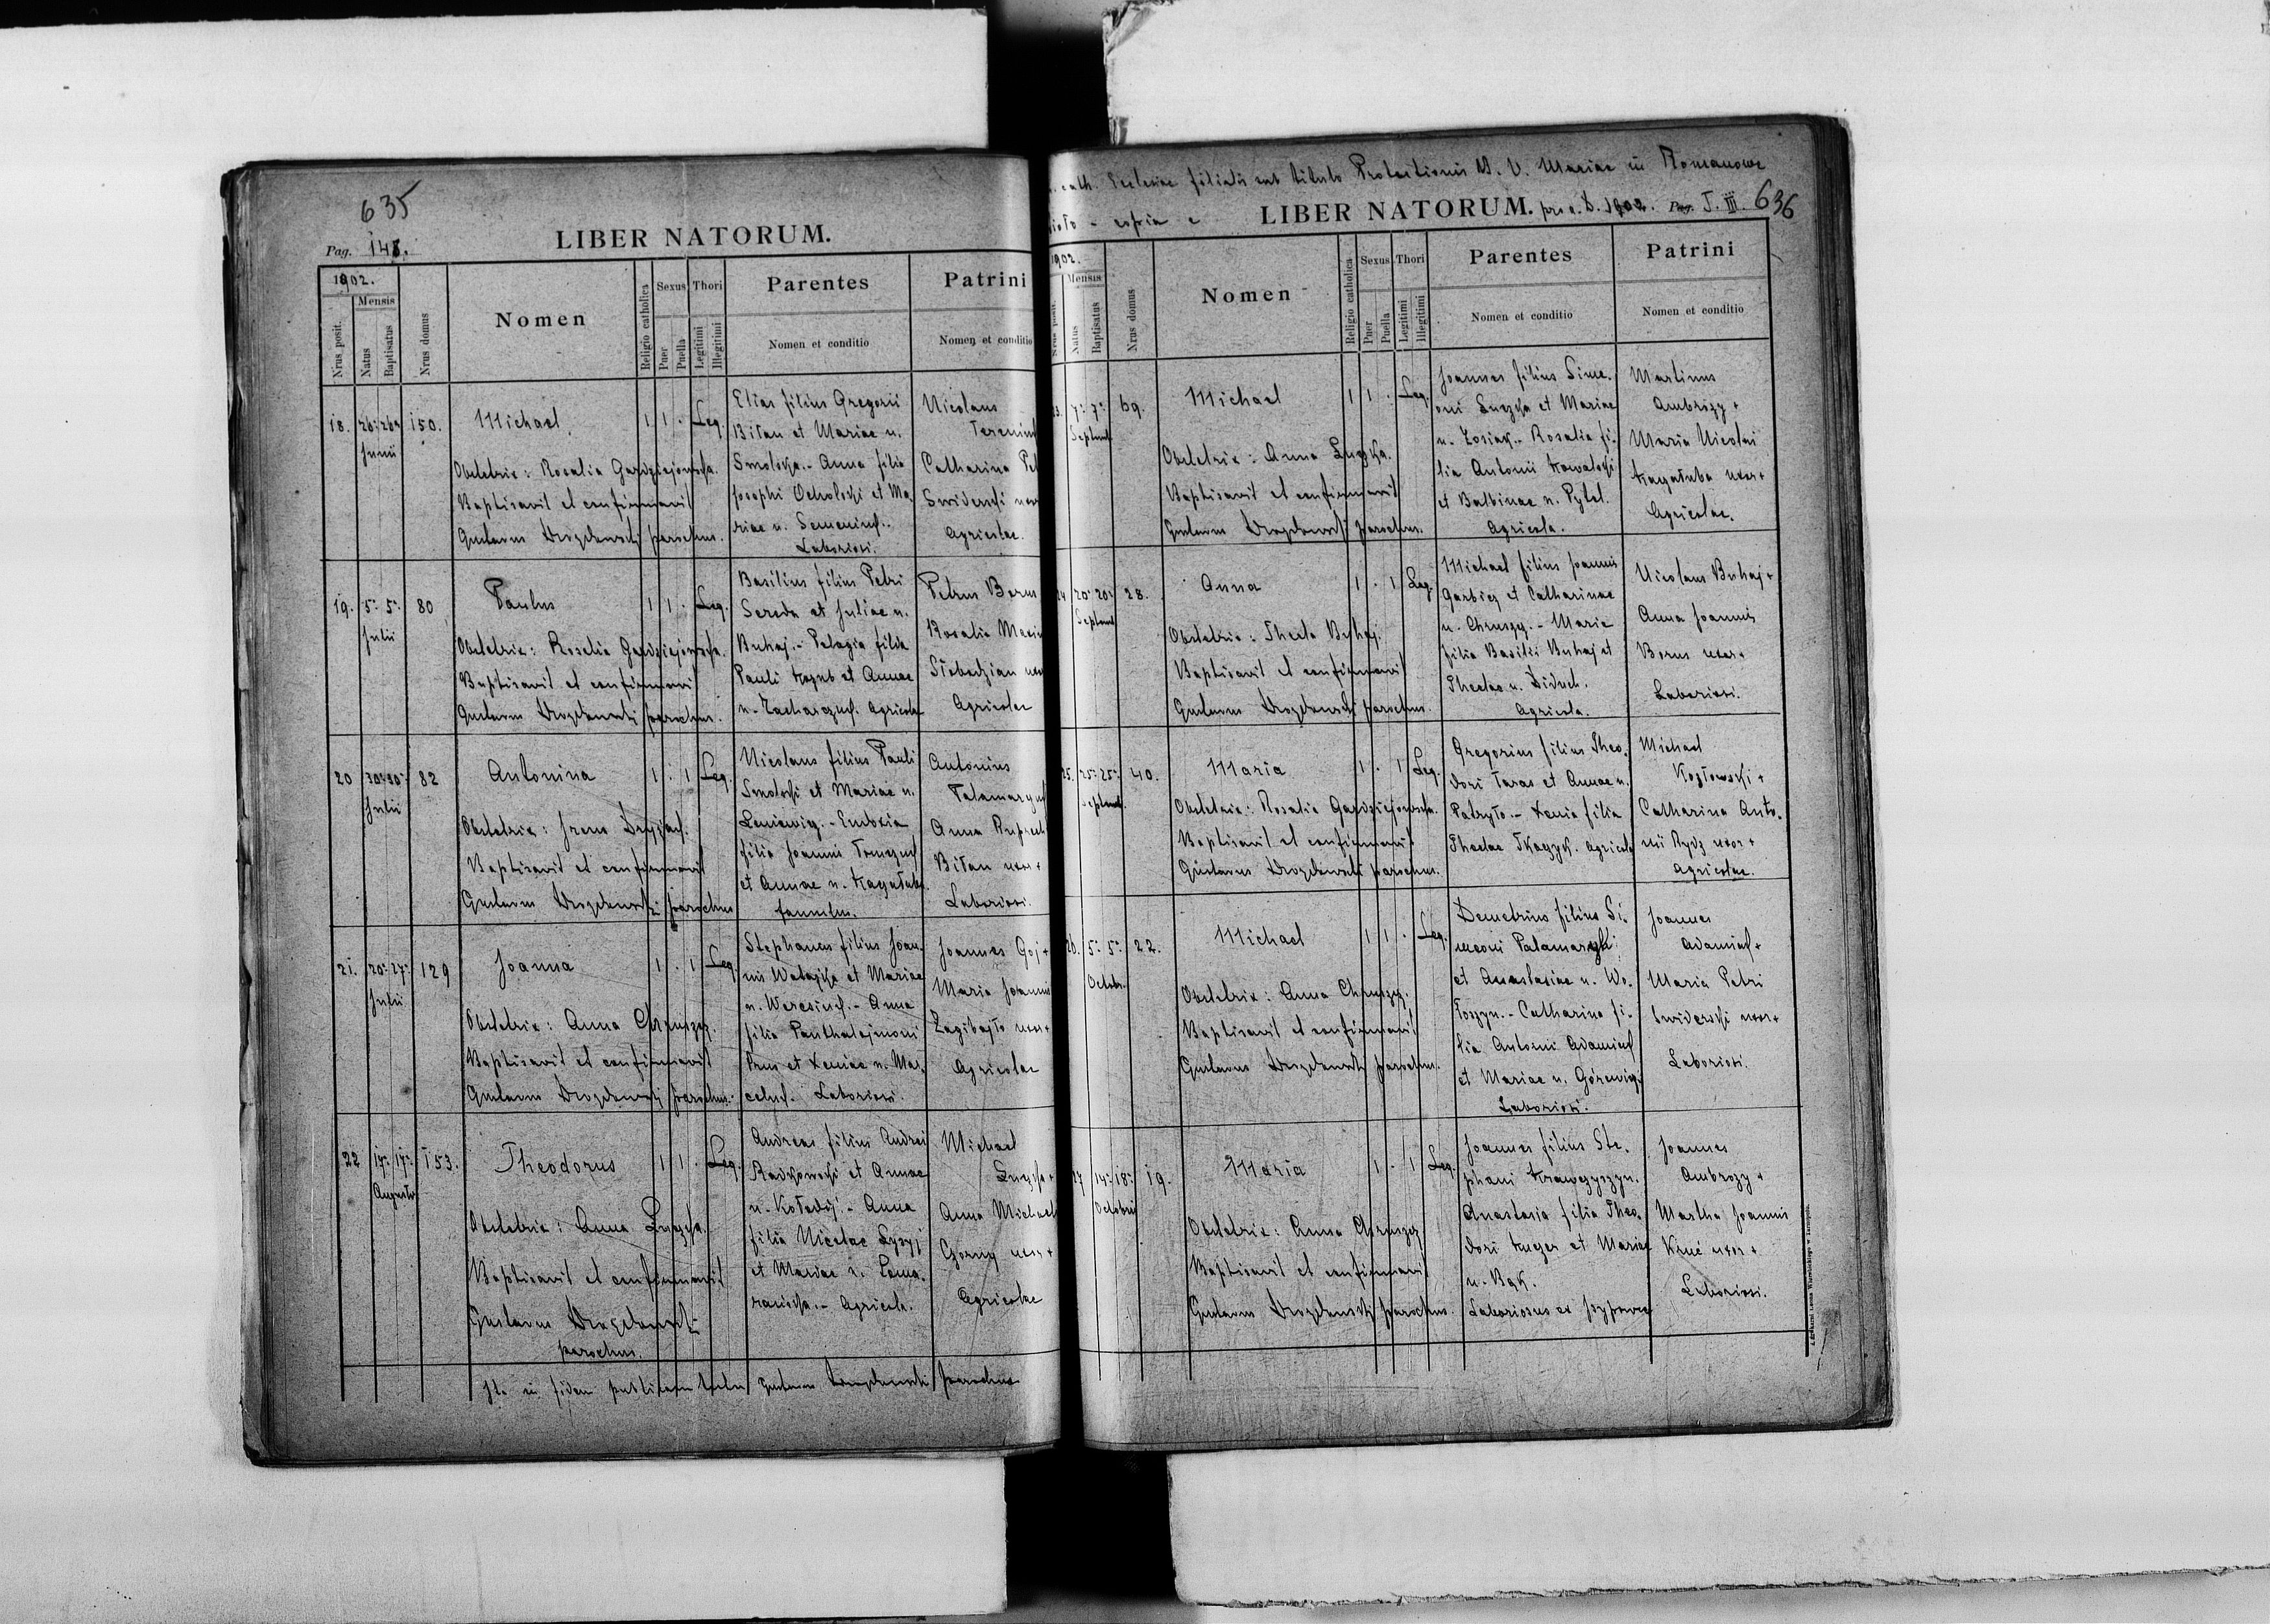 635
LIBER NATORUM.
Pag. 148.
1902.
Nrus posit.
Mensis
Natus
Baptisatus
Nrus domus
Nomen
Religio catholica
Sexus
Puer
Puella
Thori
Legitimi
Illegitimi
Parentes
Nomen et conditio
Patrini
Nomen et conditio
18. 26. 26. Junii 150.
Michael
1 1 . Leg.
Obstetrix: Rosalia
Baptisavit et confirmavit
Gustavus Drozdowski parochus.
Elias filius Gregorii
Biłan et Mariae n.
Smolska. - Anna filia
Josephi Ocholski et Ma-
riae n. Semeniuk.
Laboriosi.
Nicolaus
Catharina
Swiderski
Agricolae.
19. 5. 5. Julii 80
Paulus
1 1 . Leg.
Obstetrix: Rosalia
Baptisavit et confirmavit
Gustavus Drozdowski parochus.
Basilius filius Petri
Sereda et Juliae n.
Buhaj. - Pelagia filia
Pauli Kozub et Annae
n. Zacharczuk. Agricolae
Petrus Borus
Rosalia
Słobodzian
Agricolae
20 30. 30. Julii 82
Antonina
1 . 1 Leg.
Obstetrix: Irena
Baptisavit et confirmavit
Gustavus Drozdowski parochus
Nicolaus filius Pauli
Smolski et Mariae n.
Leniewicz. - Eudoxia
filia Joannis Tomczuk
et Annae n. Kazałuba.
famulus.
Antonius
Anna
Biłan uxor +
Laboriosi.
21. 20. 27. Julii 129
Joanna
1 . 1 Leg.
Obstetrix: Anna Chruszcz.
Baptisavit et confirmavit
Gustavus Drozdowski parochus.
Stephanus filius Joan-
nis et Mariae
n. - Anna
filia Panthalejmoni
Prus et Xeniae n. Mar-
celuk. Laboriosi.
Joannes Goj +
Maria Joannis
Zagibajło uxor +
Agricolae
22 17. 17. Augusti 153.
Theodorus
1 1 . Leg.
Obstetrix: Anna Luczka.
Baptisavit et confirmavit
Gustavus Drozdowski
parochus.
Andreas filius Andrei
Radkowski et Annae
n. Kołodij. - Anna
filia Nicolae Łysyj
et Mariae n.
Agricola.
Michael
Luczka +
Anna Michael
Gorny uxor +
Agricolae
In fidem publicam Gustavus Drozdowski parochus
cath. Ecclesiae filialis sub titulo Protectionis B. V. Mariae in Romanowe
copia
LIBER NATORUM. pro a. D. 1902. Pag. T. III. 636
1902.
Nrus posit.
Mensis
Natus
Baptisatus
Nrus domus
Nomen
Religio catholica
Sexus
Puer
Puella
Thori
Legitimi
Illegitimi
Parentes
Nomen et conditio
Patrini
Nomen et conditio
23. 7. 7. Septemb 69.
Michael
1 1 . Leg.
Obstetrix: Anna Luczka.
Baptisavit et confirmavit
Gustavus Drozdowski parochus.
Joannes filius Sime-
oni Luczka et Mariae
n. Zosiak. - Rosalia fi-
lia Antonii Kowalski
et Balbinae n. Pytel.
Agricola.
Martinus
Ambrozy +
Maria Nicolai
Kazałuba uxor +
Agricolae.
24 20. 20. Septemb 28.
Anna
1 . 1 Leg.
Obstetrix: Thecla Buhaj.
Baptisavit et confirmavit
Gustavus Drozdowski parochus.
Michael filius Joannis
Garbicz et Catharinae
n. Chruszcz. - Maria
filia Basilii Buhaj et
Theclae n. Diduch.
Agricola.
Nicolaus Buhaj +
Anna Joannis
Borus uxor +
Laboriosi.
25. 25. 25. Septemb. 40.
Maria
1 . 1 Leg.
Obstetrix: Rosalia
Baptisavit et confirmavit
Gustavus Drozdowski parochus.
Gregorius filius Theo-
dori Taras et Annae n.
Patryło. - Xenia filia
Theclae Tkaczyk. Agricola
Michael
Kozłowski +
Catharina Anto-
nii Rydz uxor +
Agricolae.
26. 5. 5. Octobr. 22.
Michael
1 1 . Leg.
Obstetrix: Anna Chruszcz.
Baptisavit et confirmavit
Gustavus Drozdowski parochus.
Demetrius filius Si-
meoni Palamarczuk
et Anastasiae n. Wo-
łoszyn. - Catharina fi-
lia Antonii Adamiuk
et Mariae n. Górewicz.
Laboriosi.
Joannes
Adamiuk +
Maria Petri
Swiderski uxor +
Laboriosi.
27 14. 18. Octobris 19.
Maria
1 . 1 Leg.
Obstetrix: Anna Chruszcz
Baptisavit et confirmavit
Gustavus Drozdowski parochus.
Joannes filius Ste-
phani Krawczyszyn.
Anastasia filia Theo-
dori Kuczer et Mariae
n. Bąk.
Laboriosus ex
Joannes
Ambrozy +
Martha Joannis
Kruć uxor +
Laboriosi.